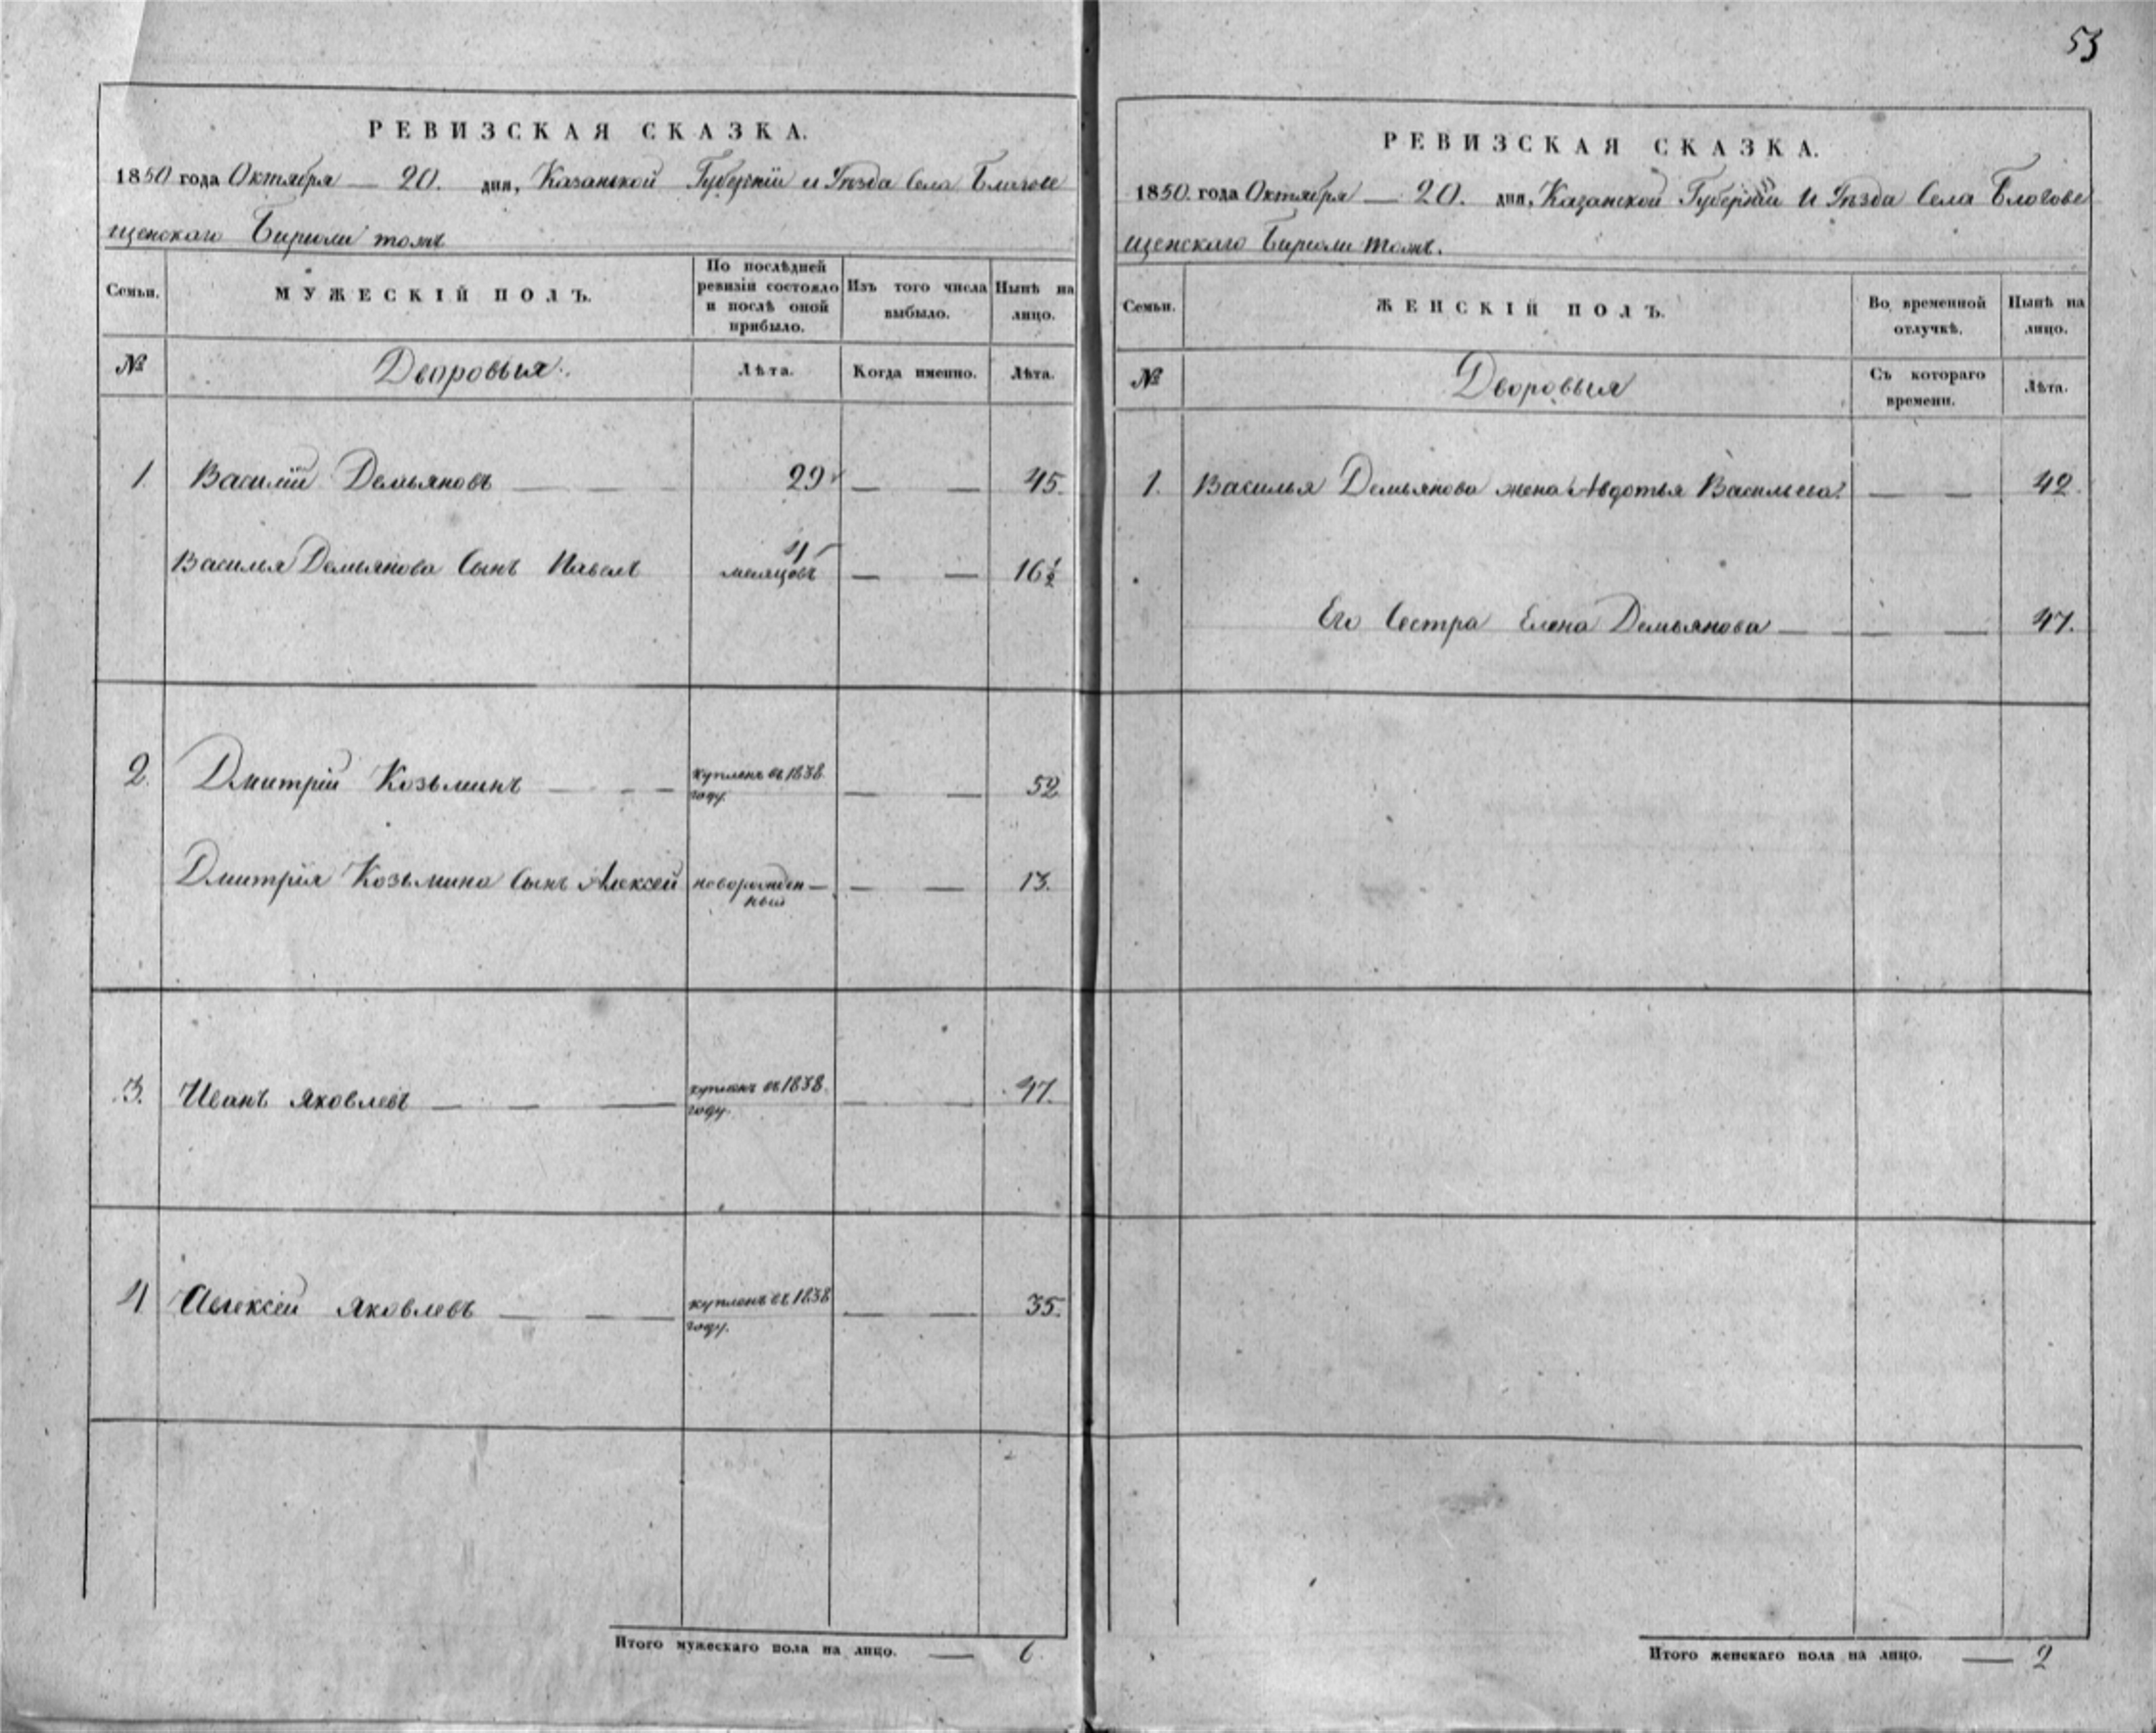 53
РЕВИЗСКАЯ СКАЗКА.
1850 года Октября — 20. дня, Казанской Губерніи и Уѣзда Села Благове
щенскаго Бирюли тожъ
Семьи.
МУЖЕСКІЙ ПОЛЪ.
По послѣдней
ревизіи состояло
и послѣ оной
прибыло.
Изъ того числа
выбыло.
Нынѣ на
лицо.
№
Дворовыя.
Лѣта.
Когда именно.
Лѣта.
1. Василій Демьяновъ — — 29 — — 45.
Василья Демьянова Сынъ Павелъ 4 месяцовъ — — 16½
2. Дмитрій Козьминъ — - — купленъ въ 1838. году. — — 52
Дмитрія Козьмина Сынъ Алексей новорожден—ный — — 13.
3. Иванъ Яковлевъ — — — купленъ въ 1838. году. — — 47.
4 Алексей Яковлевъ — — — купленъ въ 1838 году. — — 35.
Итого мужескаго пола на лицо. — 6.
РЕВИЗСКАЯ СКАЗКА.
1850. года Октября — 20. дня, Казанской Губерніи И Уѣзда Села Благове
щенскаго Бирюли тожъ.
Семьи.
ЖЕНСКІЙ ПОЛЪ.
Во временной
отлучкѣ.
Нынѣ на
лицо.
№
Дворовыя
Съ котораго
времени.
Лѣта.
1. Василья Демьянова жена Авдотья Васильева — — 42.
Его Сестра Елена Демьянова — — — 47.
Итого женскаго пола на лицо. — 2